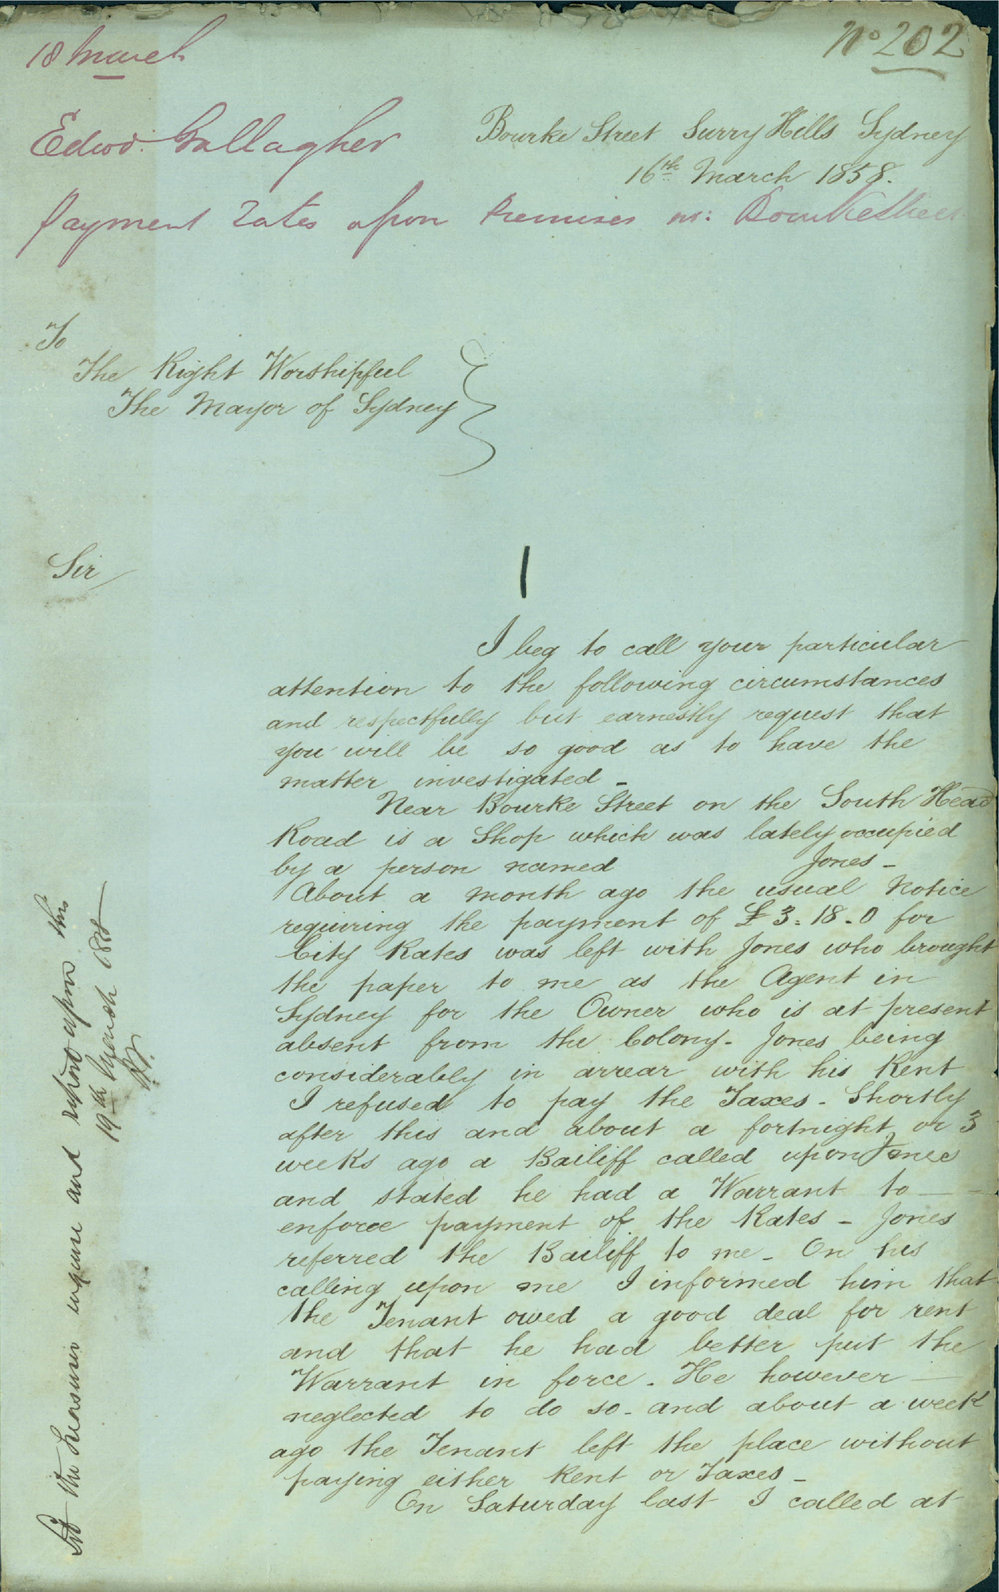 18 March
No 202
Edwd. Gallagher
Bourke Street Surry Hills Sydney
16th March 1858.
Payment rates upon Premises in: Bourke Street
To
The Right Worshipful
The Mayor of Sydney
Sir
I beg to call your particular
attention to the following circumstances
and respectfully but earnestly request that
you will be so good as to have the
matter investigated -
Near Bourke Street on the South Head
Road is a Shop which was lately occupied
by a person named Jones -
About a month ago the usual Notice
requiring the payment of £3.18.0 for
City Rates was left with Jones who brought
the paper to me as the Agent in
Sydney for the Owner who is at present
absent from the Colony - Jones being
considerably in arrear with his Rent
I refused to pay the Taxes - Shortly
after this and about a fortnight or 3
weeks ago a Bailiff called upon Jones
and stated he had a Warrant to
enforce payment of the Rates - Jones
referred the Bailiff to me - On his
calling upon me I informed him that
the Tenant owed a good deal for rent
and that he had better put the
Warrant in force - He however
neglected to do so - and about a week
ago the Tenant left the place without
paying either Rent or Taxes -
On Saturday last I called at
the Treasurer inquire and report upon this
19th March 1858